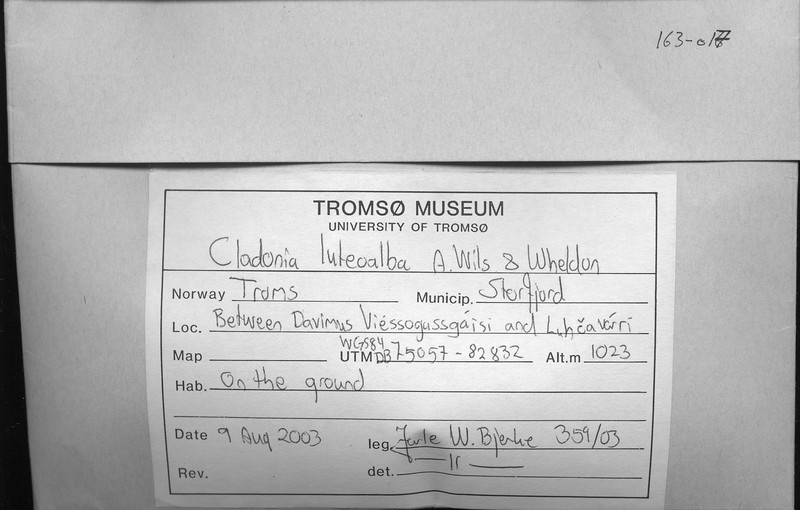 163-017
TROMSØ MUSEUM
UNIVERSITY OF TROMSØ
Cladonia luteoalba A. Wils & Wheldon
Norway Troms Municip. Storfjord
Loc. Between Davimus Viéssogussgáisi and Luhčavárri
WGS84
Map UTM DB 75057-82832 Alt.m 1023
Hab. On the ground
Date 9 Aug 2003 leg. Jarle W. Bjerke 359/03
Rev. det. — 11 —